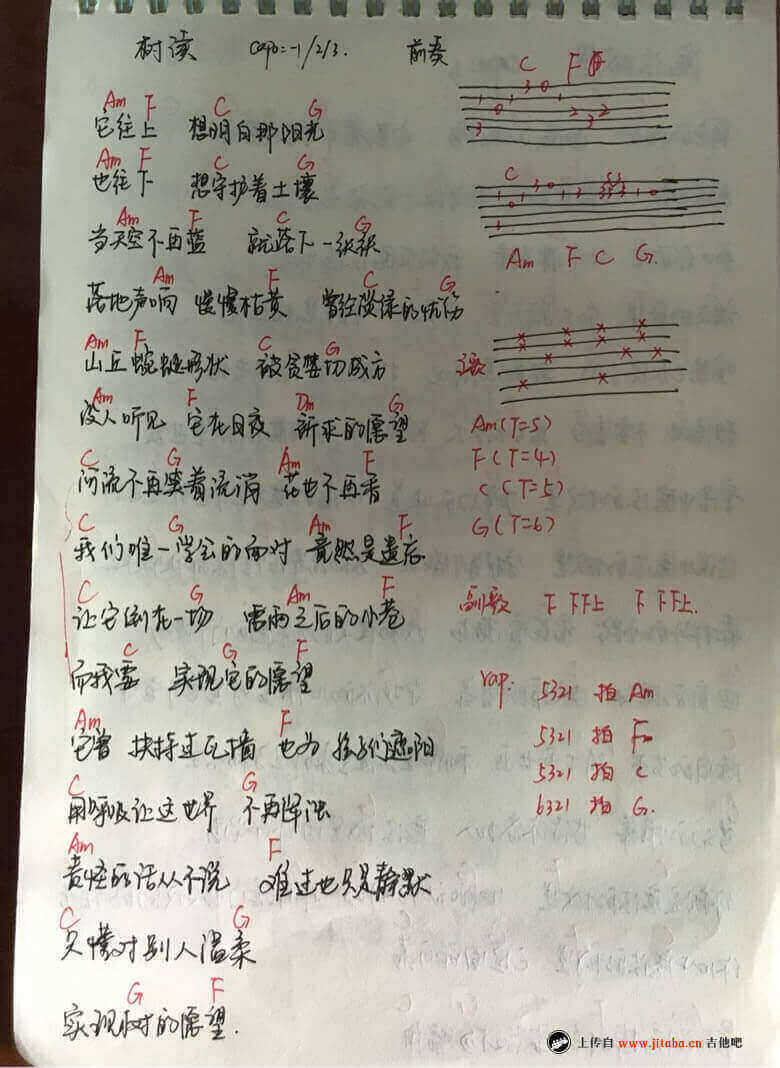 树读 capo=-1/2/3. 前奏
C F
Am F C G
它往上 想明白那阳光
Am F C G
也往下 想守护着土壤
Am F C G
当天空不再蓝 就落下一张张
Am F C G
落地声响 慢慢枯黄 曾经淡绿的忧伤
Am F C G
山丘蜿蜒形状 被贪婪切成方
Am F Dm G
没人听见 它在日夜 诉求的愿望
C G Am F
河流不再笑着流淌 花也不再香
C G Am F
我们唯一学会的面对 竟然是遗忘
C G Am F
让它倒在一场 雷雨之后的小巷
C G F
而我要 实现它的愿望
Am F
它曾 扶持过瓦墙 也为 孩子们遮阳
C G
用呼吸让这世界 不再浑浊
Am F
责怪的话从不说 难过也只是静默
C G
只懂对别人温柔
G F
实现树的愿望.
3 0 1
1 1
0 2 2
1 3
3
C
1 3 0 1 3
1 0
1
Am F C G.
主歌
Am(T=5)
F(T=4)
C(T=5)
G(T=6)
副歌 下 下下上 下 下下上.
rap: 5321 拍 Am
5321 拍
5321 拍 C
6321 拍 G.
上传自 www.jitaba.cn 吉他吧